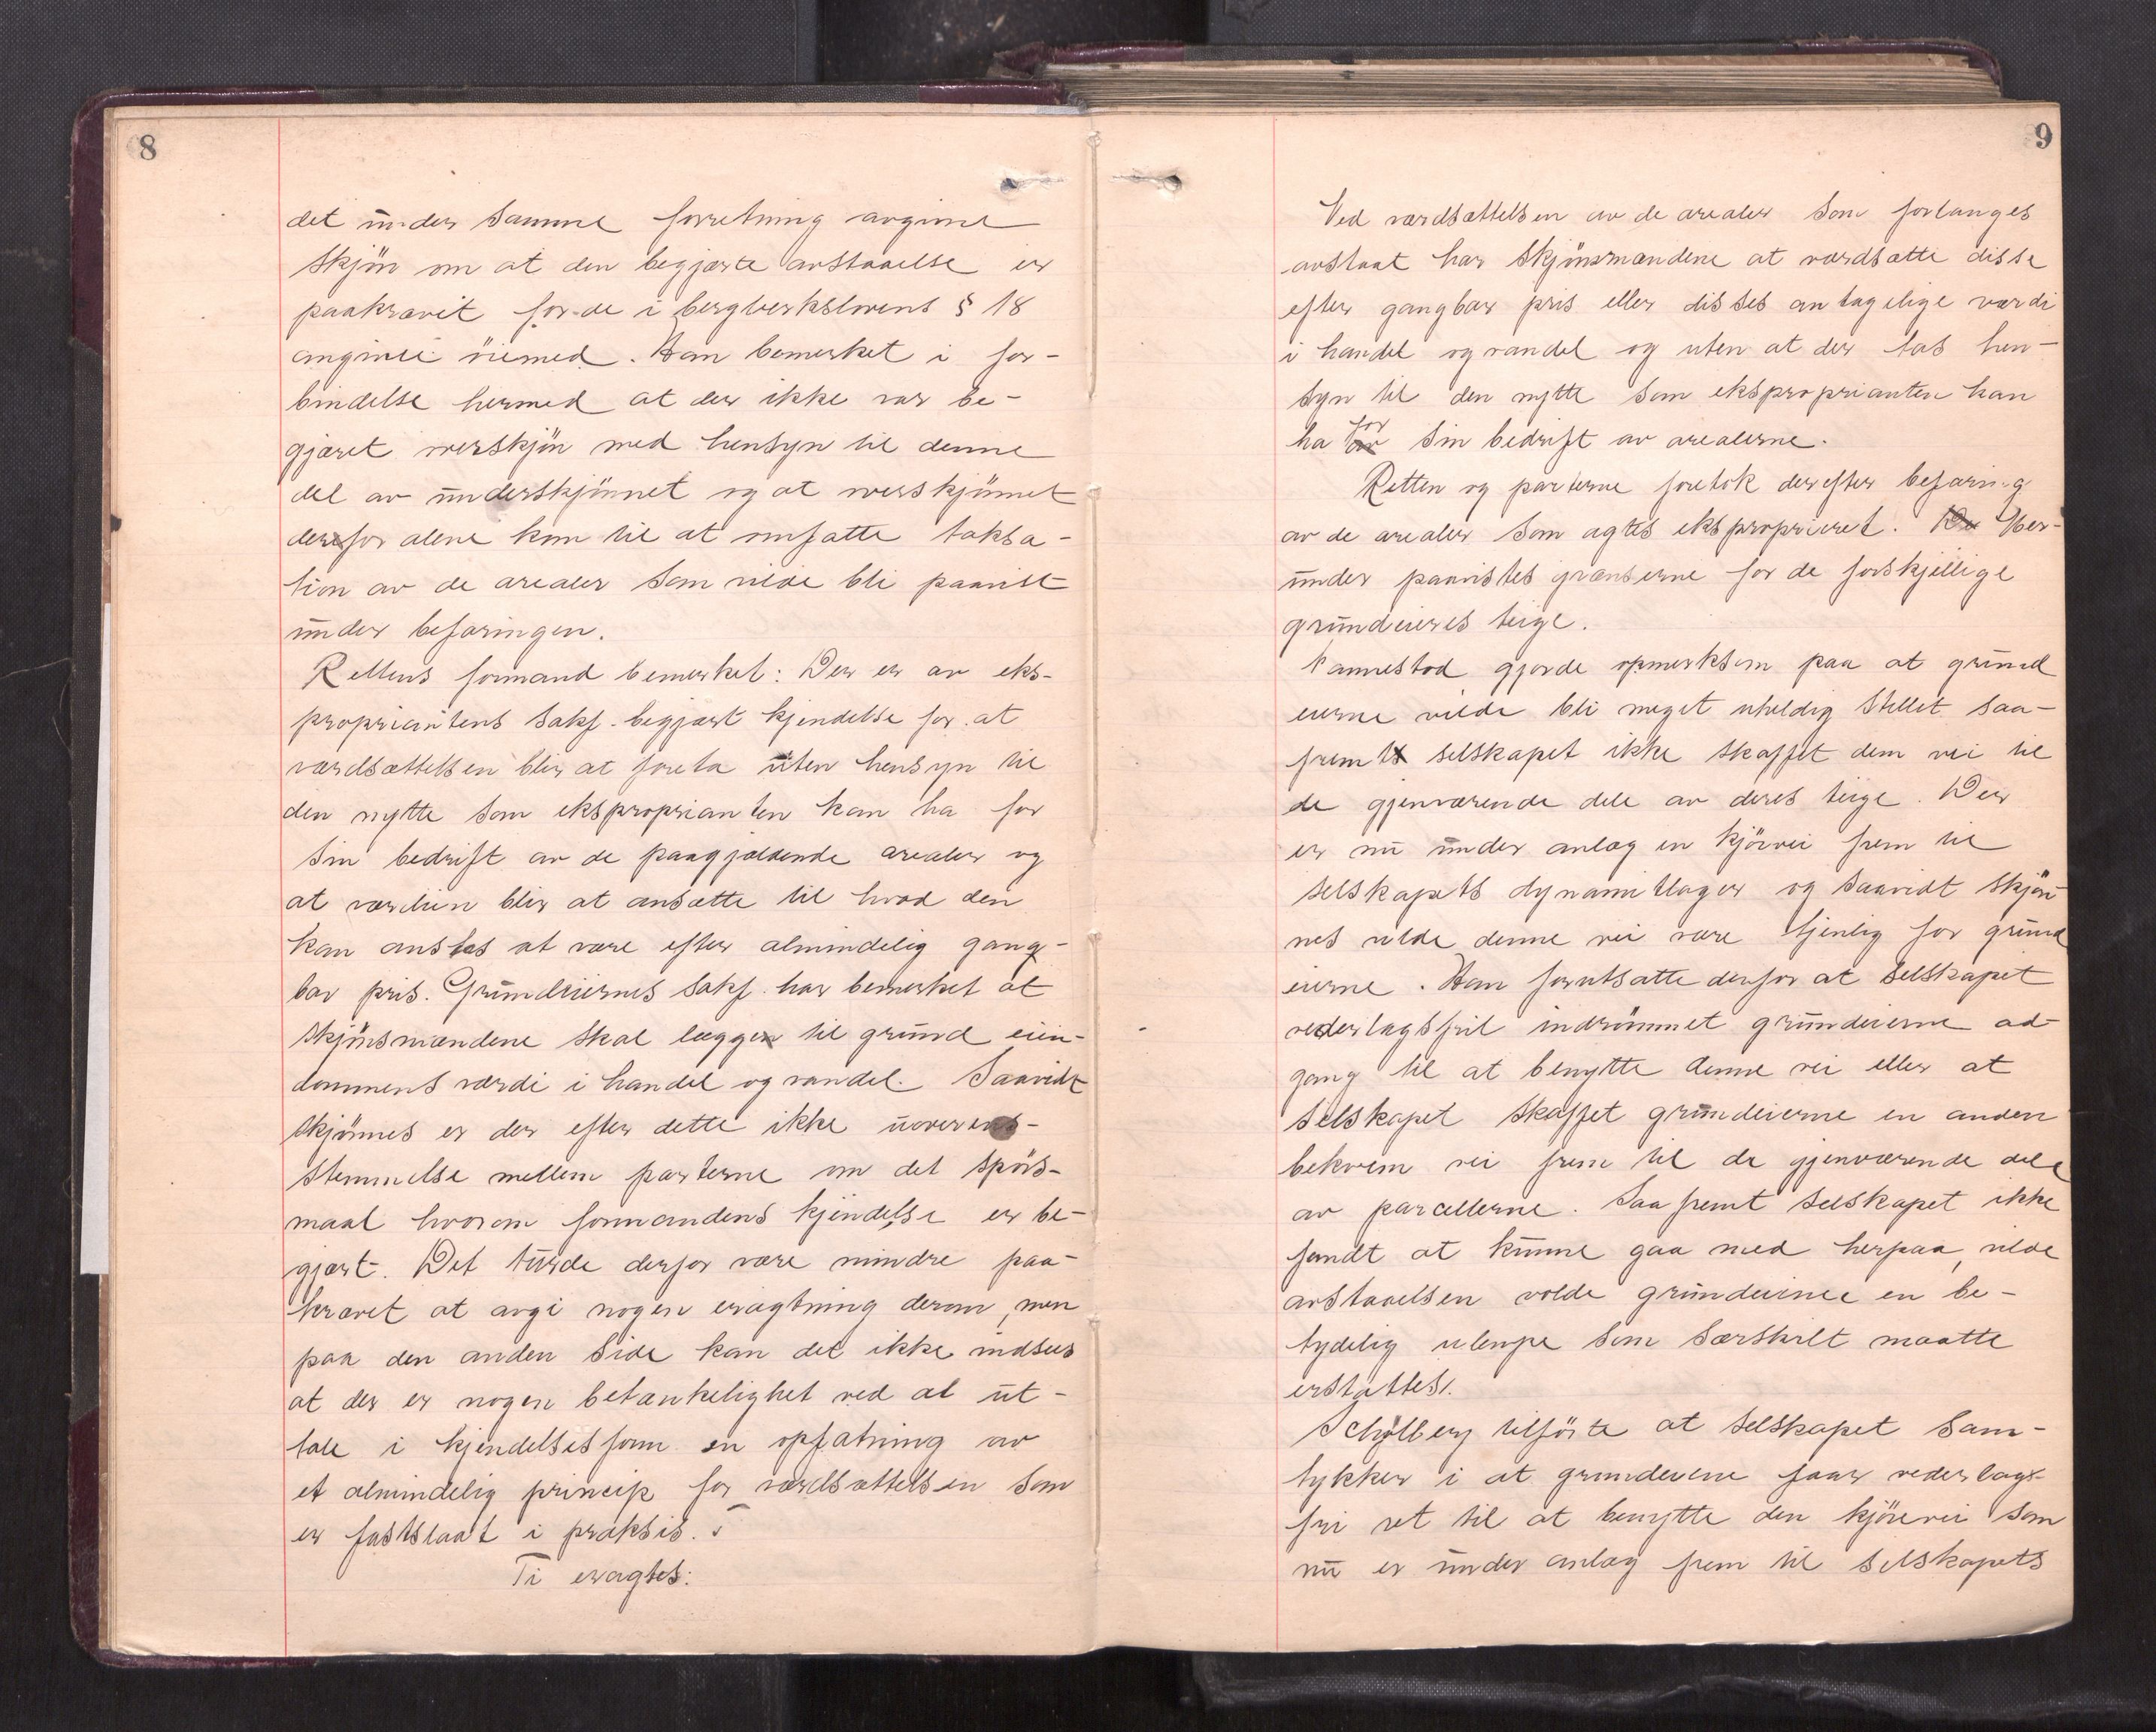 8
det under samme forretning avgivne
skjøn om at den begjærte avstaaelse er
paakrævet for de i bergverkslovens § 18
angivne øiemed. Han bemerket i for-
bindelse hermed at der ikke var be-
gjæret overskjøn med hensyn til denne
del av underskjønnet og at overskjønnet
derfor alene kom til at omfatte taksa-
tion av de arealer som vilde bli paavist
under befaringen.
Rettens formand bemerket: Der er av eks-
propriantens sakf. begjært kjendelse for at
værdsættelsen blir at foreta uten hensyn til
den nytte som eksproprianten kan ha for
sin bedrift av de paagjældende arealer og
at værdien blir at ansætte til hvad den
kan ansees at være efter almindelig gang-
bar pris. Grundeiernes sakf. har bemerket at
skjønsmændene skal lægge til grund eien-
dommens værdi i handel og vandel. Saavidt
skjønnes er der efter dette ikke uoverens-
stemmelse mellem parterne om det spørs-
maal hvorom formandens kjendelse er be-
gjært. Det turde derfor være mindre paa-
krævet at avgi nogen eragtning derom, men
paa den anden side kan det ikke indsees
at der er nogen betænkelighet ved at ut-
tale i kjendelsesform en opfatning av
et almindelig princip for værdsættelsen som
er fastslaat i praksis.
Ti eragtes:
9
Ved værdsættelsen av de arealer som forlanges
avstaat har skjønsmændene at værdsætte disse
efter gangbar pris eller disses antagelige værdi
i handel og vandel og uten at der tas hen-
syn til den nytte som eksproprianten kan
ha for sin bedrift av arealerne.
Retten og parterne foretok derefter befaring
av de arealer som agtes ekspropriert. Her-
under paavistes grænserne for de forskjellige
grundeieres teige.
Vannestad gjorde opmerksom paa at grund
eierne vilde bli meget uheldig stillet saa-
fremt selskapet ikke skaffet dem vei til
de gjenværende dele av deres teige. Der
er nu under anlæg en kjørvei frem til
selskapets dynamitlager og saavidt skjøn-
nes vilde denne vei være tjenlig for grund
eierne. Han forutsatte derfor at selskapet
vederlagsfrit indrømmet grundeierne ad-
gang til at benytte denne vei eller at
selskapet skaffet grundeierne en anden
bekvem vei frem til de gjenværende dele
av parcellerne. Saafremt selskapet ikke
fandt at kunne gaa med herpaa, vilde
avstaaelsen volde grundeierne en be-
tydelig ulempe som særskilt maatte
erstattes.
Schjølberg tilførte at selskapet sam-
tykker i at grundeierne faar vederlags-
fri ret til at benytte den kjørevei som
nu er under anlæg frem til selskapets